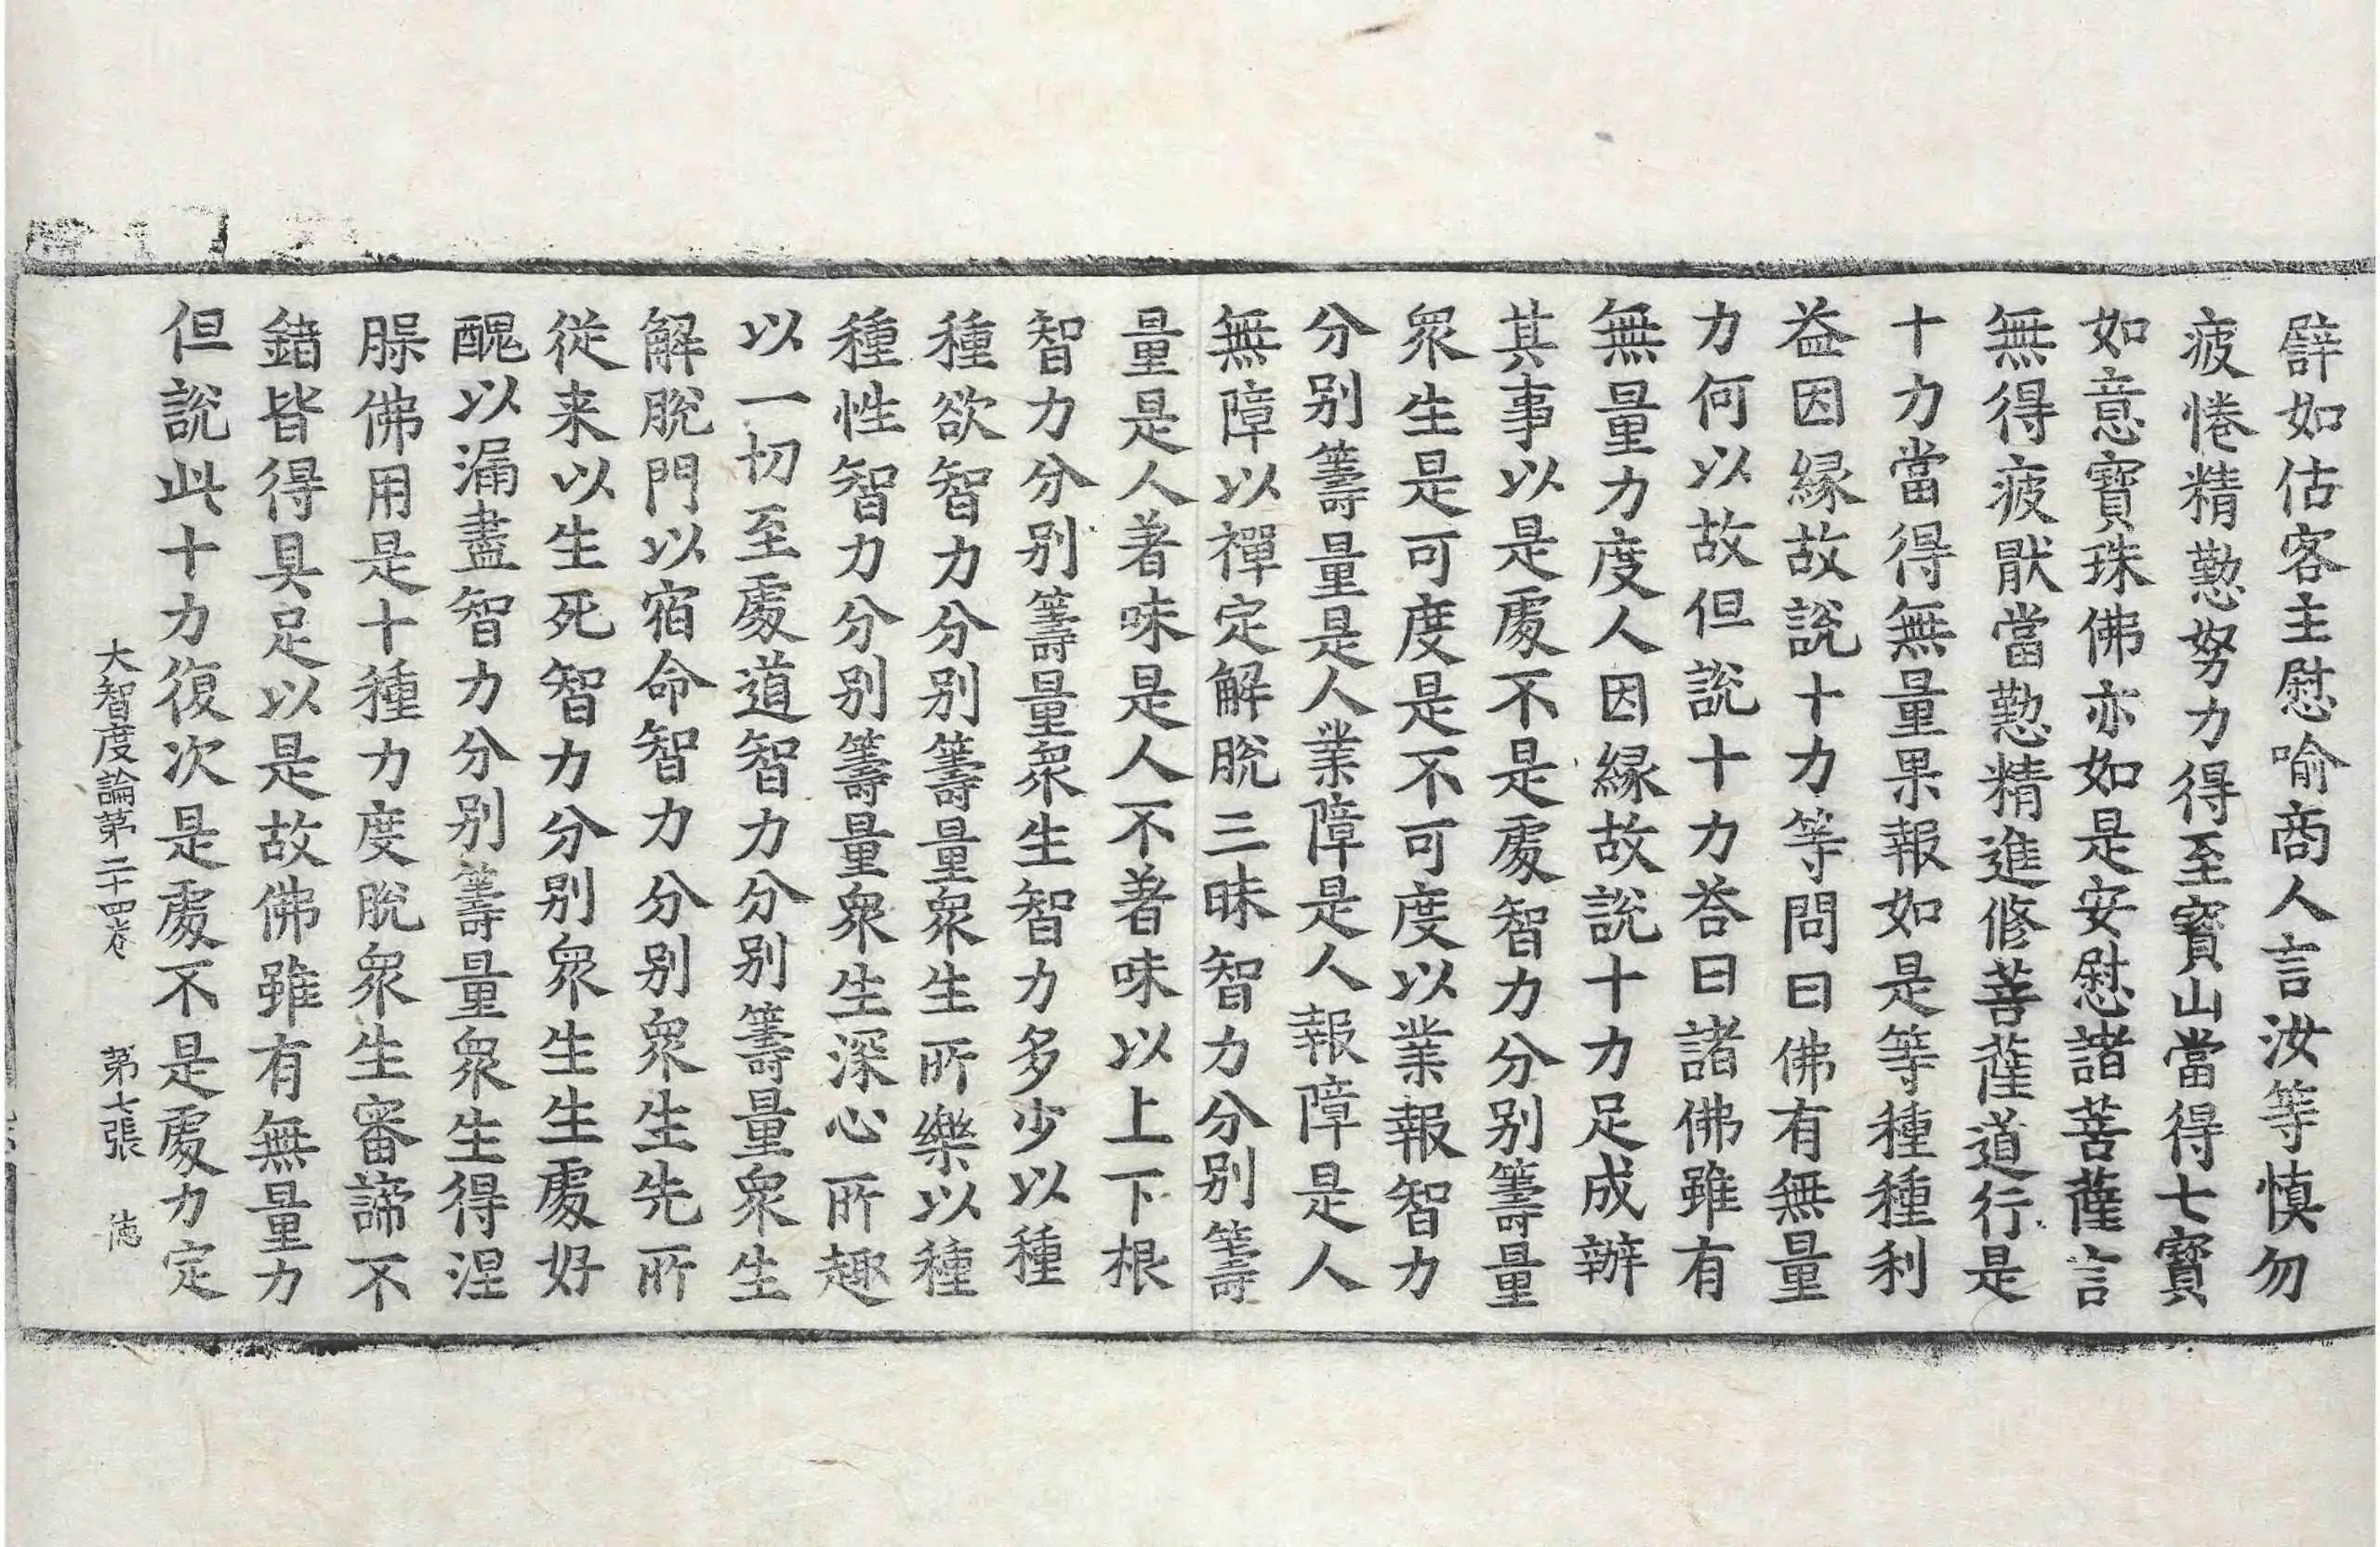 譬如估客主慰喻商人言汝等慎勿
疲惓精懃努力得至寶山當得七寶
如意寶珠佛亦如是安慰諸菩薩言
無得疲猒當懃精進修菩薩道行是
十力當得無量果報如是等種種利
益因縁故說十力等問曰佛有無量
力何以故但說十力荅曰諸佛雖有
無量力度人因縁故說十力足成辦
其事以是處不是處智力分別籌量
衆生是可度是不可度以業報智力
分別籌量是人業障是人報障是人
無障以禪定解脫三昧智力分別籌
量是人著味是人不著味以上下根
智力分別籌量衆生智力多少以種
種欲智力分別籌量衆生所樂以種
種性智力分別籌量衆生深心所趣
以一切至處道智力分別籌量衆生
解脫門以宿命智力分別衆生先所
從来以生死智力分別衆生生處好
醜以漏盡智力分別籌量衆生得涅
槃佛用是十種力度脫衆生審諦不
錯皆得具足以是故佛雖有無量力
但說此十力復次是處不是處力定
大智度論第二十四卷 第七張 德